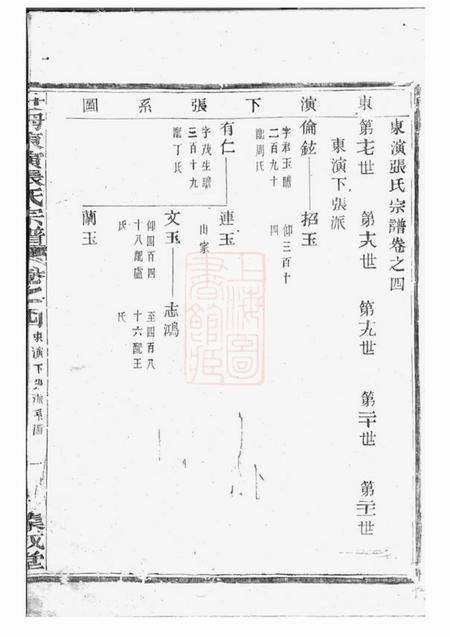 東演張氏宗譜卷之四
東演下張系圖
第十七世 第十八世 第十九世 第二十世 第二十一世
東演下張派
倫鉉 招玉
字君玉贍
二百九十
龍周氏
仰三百十
四
有仁 連玉
字茂生贍
三百十九
龍丁氏
山家
文玉 志鴻
仰四百四
十八龍盧
氏
至四百八
十六配王
氏
蘭玉
上海圖書館藏
東演張氏宗譜 卷之四 東演下張派系圖 一 集成堂